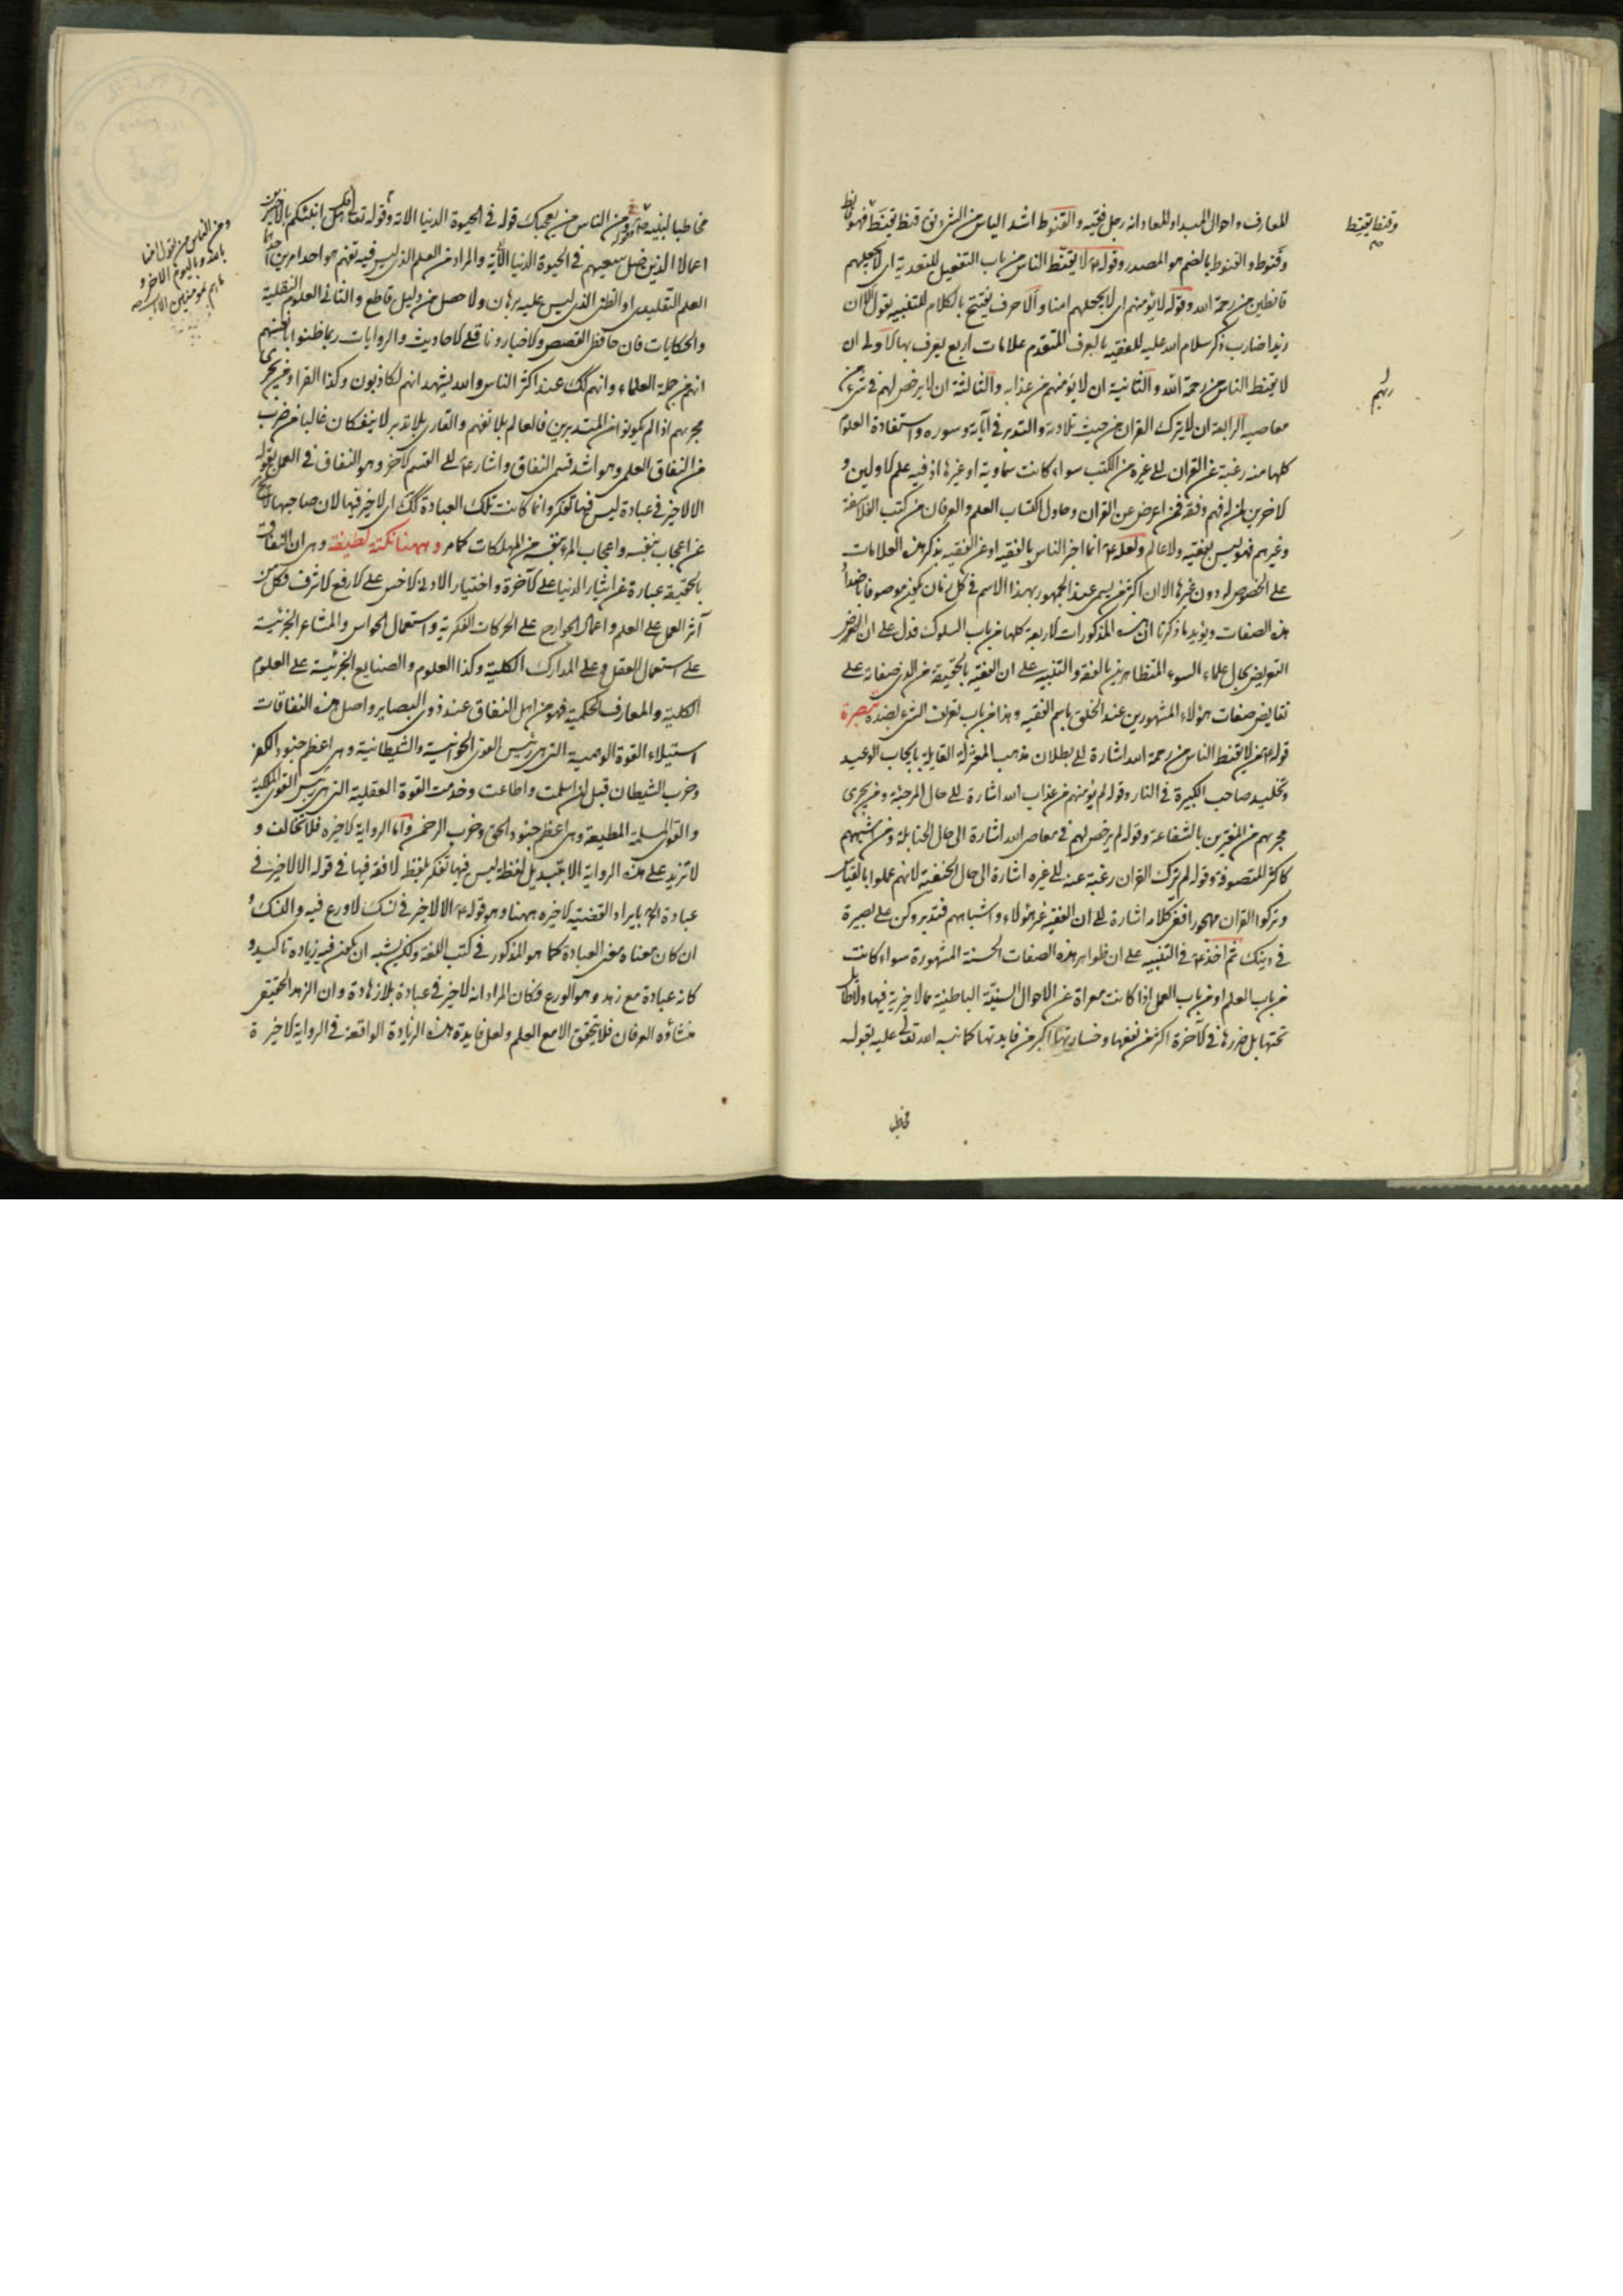 للمعارف واحوال المبداء والمعاد انه رجل فقيه والقنوط اشد الياس من الشيء يق قنط يقنط فهو قانط
وقنوط والقنوط بالضم هو المصدر وقوله ع لا يقنط الناس من باب التفعيل للتعدية اى لا يجعلهم
قانطين من رحمة الله وقوله لا يؤمنهم اى لا يجعلهم امنا والا حرف يفتتح بالكلام للتنبيه يقول الا ان
زيدا ضارب ذكر سلام الله عليه للفقيه بالعرف المتقدم علامات اربع يعرف بها الاولى ان
لا يقنط الناس من رحمة الله والثانية ان لا يؤمنهم من عذابه والثالثة ان لا يرخص لهم فى شىء من
معاصيه الرابعة ان لا يترك القران من حيث تلاوته والتدبر فى آياته وسوره واستفادة العلوم
كلها منه رغبة عن القران الى غيره من الكتب سواء كانت سماوية او غيرها اذ فيه علم الاولين و
الاخرين لمن له فهم وفقه فمن اعرض عن القران وحاول اكتساب العلم والعرفان من كتب الفلاسفة
وغيرهم فهو ليس بفقيه ولا عالم ولعله ع انما اخبر الناس بالفقيه او عن الفقيه بذكر هذه العلامات
على الخصوص له دون غيرها الا ان اكثر من يسمى عند الجمهور بهذا الاسم فى كل زمان يكون موصوفا باضداد
هذه الصفات ويؤيد ما ذكرنا ان هذه المذكورات الاربعة كلها من باب السلوك فدل على ان الغرض
التعريض بحال علماء السوء المتظاهرين بالفقه والتنبيه على ان الفقيه بالحقيقة من الذى صفاته على
نقايض صفات هؤلاء المشهورين عند الخلق باسم الفقيه وهذا من باب تعريف الشىء بضده تبصرة
قوله ع من لا يقنط الناس من رحمة الله اشارة الى بطلان مذهب المعتزلة القايلة بايجاب الوعيد
وتخليد صاحب الكبيرة فى النار وقوله لم يؤمنهم من عذاب الله اشارة الى حال المرجئة ومن يجرى
مجريهم من المغترين بالشفاعة وقوله لم يرخص لهم فى معاصى الله اشارة الى حال الحنابلة ومن اشبههم
كاكثر المتصوفة وقوله لم يترك القران رغبة عنه الى غيره اشارة الى حال الحنفية لانهم عملوا بالقياس
وتركوا القران مهجورا ففى كلامه اشارة الى ان الفقيه غير هؤلاء واشباههم فتدبر وكن على بصيرة
فى دينك ثم اخذ ع فى التنبيه على ان ظواهر هذه الصفات الحسنة المشهورة سواء كانت
من باب العلم او من باب العمل اذا كانت معراة عن الاحوال السنيّة الباطنية مما لا خيرية فيها ولا طايل
تحتها بل ضررها فى الآخرة اكثر من نفعها وخسارتها اكبر من فايدتها كما نبه الله تعالى عليه بقوله
مخاطبا
وقنط يقنط
مخاطبا لنبيه ومن الناس من يعجبك قوله فى الحيوة الدنيا الاية وقوله تعالى قل هل انبئكم بالاخسرين
اعمالا الذين ضل سعيهم فى الحيوة الدنيا الآية والمراد من العلم الذى ليس فيه تفهم هو احد امرين احدهما
العلم التقليدى او الظنى الذى ليس عليه برهان ولا حصل من دليل قاطع والثانى العلوم النقلية
والحكايات فان حافظ القصص والاخبار وناقل الاحاديث والروايات ربما ظنوا بانفسهم
انهم من جملة العلماء وانهم لك عند اكثر الناس والله يشهد انهم لكاذبون وكذا القراء ومن يجرى
مجريهم اذا لم يكونوا من المتدبرين فالعالم بلا تفهم والقارى بلا تدبر لا ينفكان غالبا من ضرب
من النفاق العلمى وهو اشد قسمى النفاق واشار ع الى القسم الآخر وهو النفاق فى العمل بقوله
الا لا خير فى عبادة ليس فيها تفكر وانما كانت تلك العبادة كك اى لا خير فيها لان صاحبها لا يخ
عن اعجاب بنفسه واعجاب المرء بنفسه من المهلكات كما مر وههنا نكتة لطيفة وهى ان النفاق
بالحقيقة عبارة عن ايثار الدنيا على الآخرة واختيار الادنى الاخس على الارفع الاشرف فكل من
آثر العمل على العلم واعمال الجوارح على الحركات الفكرية واستعمال الحواس والمشاعر الجزئية
على استعمال العقل وعلى المدارك الكلية وكذا العلوم والصنايع الجزئية على العلوم
الكلية والمعارف الحكمية فهو من اهل النفاق عند ذوى البصاير واصل هذه النفاقات
استيلاء القوة الوهمية التى هى رئيس القوى الحيوانية والشيطانية وهى اعظم جنود الكفر
وحزب الشيطان قبل ان اسلمت واطاعت وخدمت القوة العقلية التى هى رئيس القوى الملكية
والقوى المسلمة المطيعة وهى اعظم جنود الحق وحزب الرحمن واما الرواية الاخيرة فلا تخالف و
لا تزيد على هذه الرواية الا بتبديل لفظة ليس فيها تفكر بلفظ لا فقه فيها فى قوله الا لا خير فى
عبادة اه بايراد القضية الاخيرة ههنا وهو قوله ع الا لا خير فى نسك لا ورع فيه والنسك و
ان كان معناه معنى العبادة كما هو المذكور فى كتب اللغة ولكن يشبه ان يكون فيه زيادة تاكيد و
كانه عبادة مع زهد وهو الورع فكان المراد انه لا خير فى عبادة بلا زهادة وان الزهد الحقيقى
منشاؤه العرفان فلا يتحقق الا مع العلم ولعل فايدة هذه الزيادة الواقعة فى الرواية الاخيرة
ومن الناس من يقول امنا
بالله وباليوم الاخر و
ما هم بمؤمنين الاية